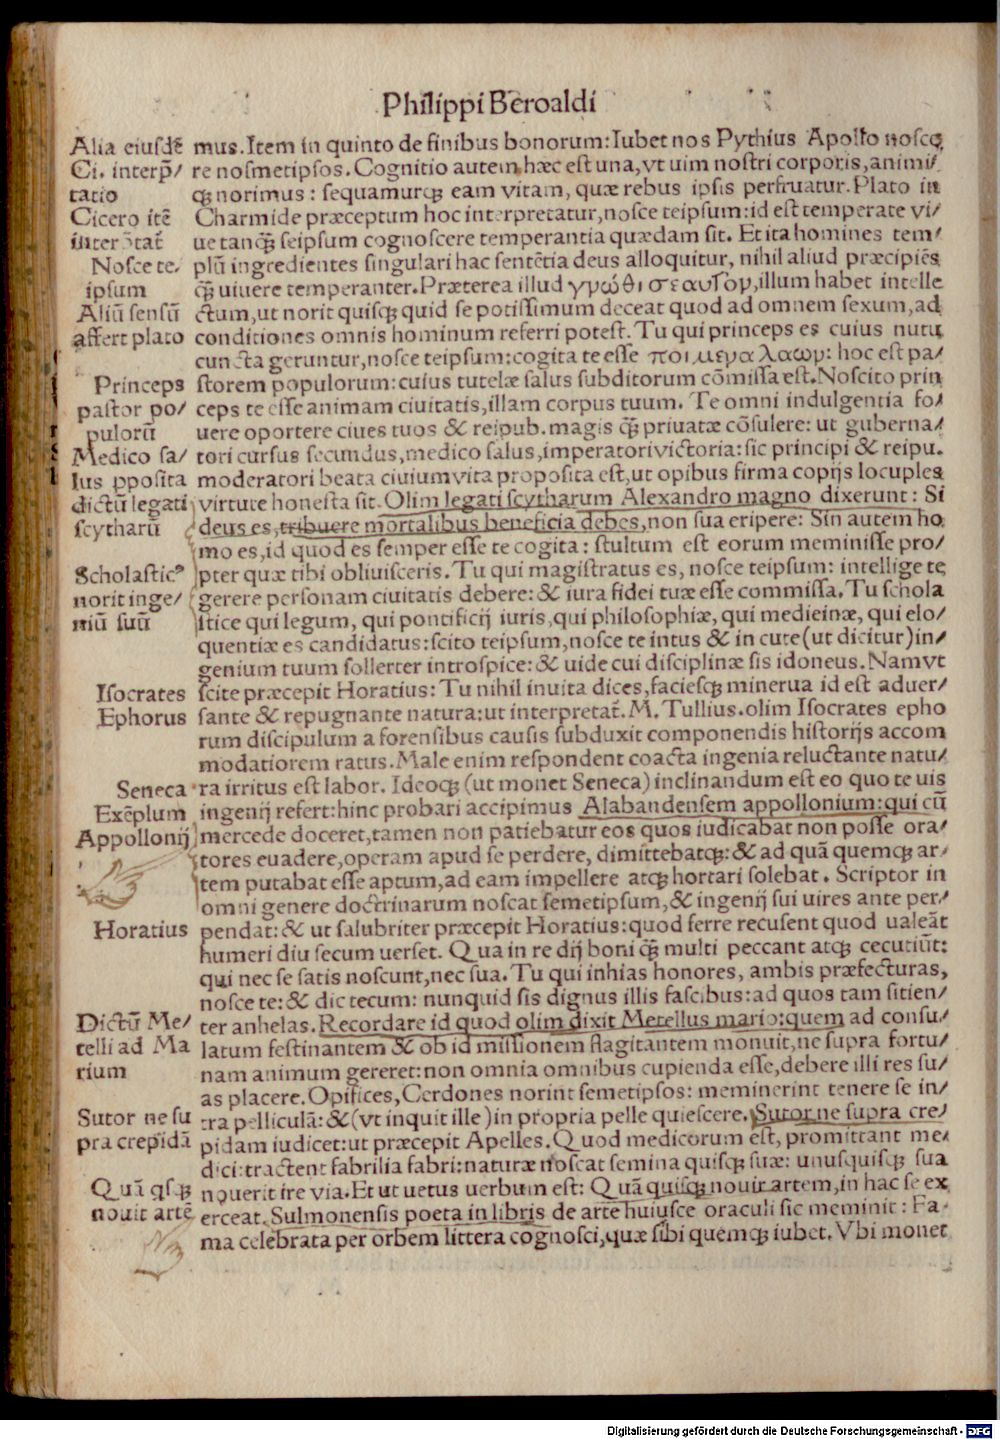 Philippi Beroaldi
Alia eiusdē
Ci. interp̄/
tatio
Cicero itē
Nosce te,
ipsum
Aliū sensū
affert plato
Princeps
pastor po/
pulorū
Medico sa/
lus pposita
dictū legati
scytharū
Scholastic⁹
norit inge/
niū suū
Isocrates
Ephorus
Seneca
Exēplum
Appollonij
Horatius
Dictū Me/
telli ad Ma
rium
Sutor ne su
pra crepidā
Quā qsq₃
nouit artē
mus. Item in quinto de finibus bonorum: Iubet nos Pythius Apollo nosce
re nosmetipsos. Cognitio autem hæc est una, vt uim nostri corporis, animi/
q₃ norimus: sequamurq₃ eam vitam, quæ rebus ipsis perfruatur. Plato in
Charmide præceptum hoc interpretatur, nosce teipsum: id est temperate vi/
ue tanq̄₃ seipsum cognoscere temperantia quædam sit. Et ita homines tem/
plū ingredientes singulari hac sentētia deus alloquitur, nihil aliud præcipiēs
q̄₃ uiuere temperanter. Præterea illud γνῶθι σεαυτον, illum habet intelle
ctum, ut norit quisq₃ quid se potissimum deceat quod ad omnem sexum, ad
conditiones omnis hominum referri potest. Tu qui princeps es cuius nutu
cuncta geruntur, nosce teipsum: cogita te esse ποιμενα λαων: hoc est pa/
storem populorum: cuius tutelæ salus subditorum cōmissa est. Noscito prin
ceps te esse animam ciuitatis, illam corpus tuum. Te omni indulgentia fo/
uere oportere ciues tuos & reipub. magis q̄₃ priuatæ cōsulere: ut guberna/
tori cursus secundus, medico salus, imperatori victoria: sic principi & reipu.
moderatori beata ciuium vita proposita est, ut opibus firma copijs locuples
virtute honesta sit. Olim legati scytharum Alexandro magno dixerunt: Si
deus es, tribuere mortalibus beneficia debes, non sua eripere: Sin autem ho
mo es, id quod es semper esse te cogita: stultum est eorum meminisse pro/
pter quæ tibi obliuisceris. Tu qui magistratus es, nosce teipsum: intellige te
gerere personam ciuitatis debere: & iura fidei tuæ esse commissa. Tu schola
stice qui legum, qui pontificij iuris, qui philosophiæ, qui medicinæ, qui elo/
quentiæ es candidatus: scito teipsum, nosce te intus & in cute (ut dicitur) in/
genium tuum sollerter introspice: & uide cui disciplinæ sis idoneus. Nam vt
scite præcepit Horatius: Tu nihil inuita dices, faciesq₃ minerua id est aduer/
sante & repugnante natura: ut interpretat̄. M. Tullius. olim Isocrates epho
rum discipulum a forensibus causis subduxit componendis historijs accom
modatiorem ratus. Male enim respondent coacta ingenia reluctante natu/
ra irritus est labor. Ideoq₃ (ut monet Seneca) inclinandum est eo quo te uis
ingenij refert: hinc probari accipimus Alabandensem appollonium: qui cū
mercede doceret, tamen non patiebatur eos quos iudicabat non posse ora/
tores euadere, operam apud se perdere, dimittebatq₃: & ad quā quemq₃ ar/
tem putabat esse aptum, ad eam impellere atq₃ hortari solebat. Scriptor in
omni genere doctrinarum noscat semetipsum, & ingenij sui uires ante per/
pendat: & ut salubriter præcepit Horatius: quod ferre recusent quod ualeāt
humeri diu secum uerset. Qua in re dij boni q̄₃ multi peccant atq₃ cecutiūt:
qui nec se satis noscunt, nec sua. Tu qui inhias honores, ambis præfecturas,
nosce te: & dic tecum: nunquid sis dignus illis fascibus: ad quos tam sitien/
ter anhelas. Recordare id quod olim dixit Metellus mario: quem ad consu/
latum festinantem & ob id missionem flagitantem monuit, ne supra fortu/
nam animum gereret: non omnia omnibus cupienda esse, debere illi res su/
as placere. Opifices, Cerdones norint semetipsos: meminerint tenere se in/
tra pelliculā: & (vt inquit ille) in propria pelle quiescere. Sutor ne supra cre/
pidam iudicet: ut præcepit Apelles. Quod medicorum est, promittant me/
dici: tractent fabrilia fabri: naturæ noscat semina quisq₃ suæ: unusquisq₃ sua
nouerit ire via. Et ut uetus uerbum est: Quā quisq₃ nouit artem, in hac se ex
erceat. Sulmonensis poeta in libris de arte huiusce oraculi sic meminit: Fa/
ma celebrata per orbem littera cognosci, quæ sibi quemq₃ iubet. Vbi monet
Digitalisierung gefördert durch die Deutsche Forschungsgemeinschaft - DFG